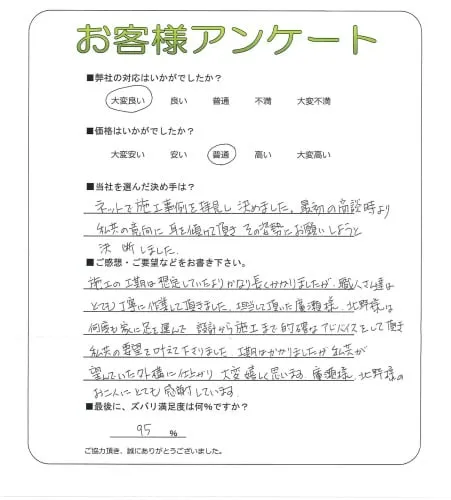 お客様アンケート
■弊社の対応はいかがでしたか？
大変良い 良い 普通 不満 大変不満
■価格はいかがでしたか？
大変安い 安い 普通 高い 大変高い
■当社を選んだ決め手は？
ネットで施工事例を拝見し決めました。最初の商談時より
私共の意向に耳を傾けて頂きその姿勢にお願いしようと
決断しました。
■ご感想・ご要望などをお書き下さい。
施工の工期は想定していたよりかなり長くかかりましたが、職人さん達は
とても丁寧に作業して頂きました。担当して頂いた廣瀬様、北野様は
何度も家に足を運んで 設計から施工まで的確なアドバイスをして頂き
私共の要望を叶えて下さりました。工期はかかりましたが私共が
望んでいた外構に仕上がり大変嬉しく思います。廣瀬様、北野様の
お二人にとても感謝しています。
■最後に、ズバリ満足度は何％ですか？
95 ％
ご協力頂き、誠にありがとうございました。